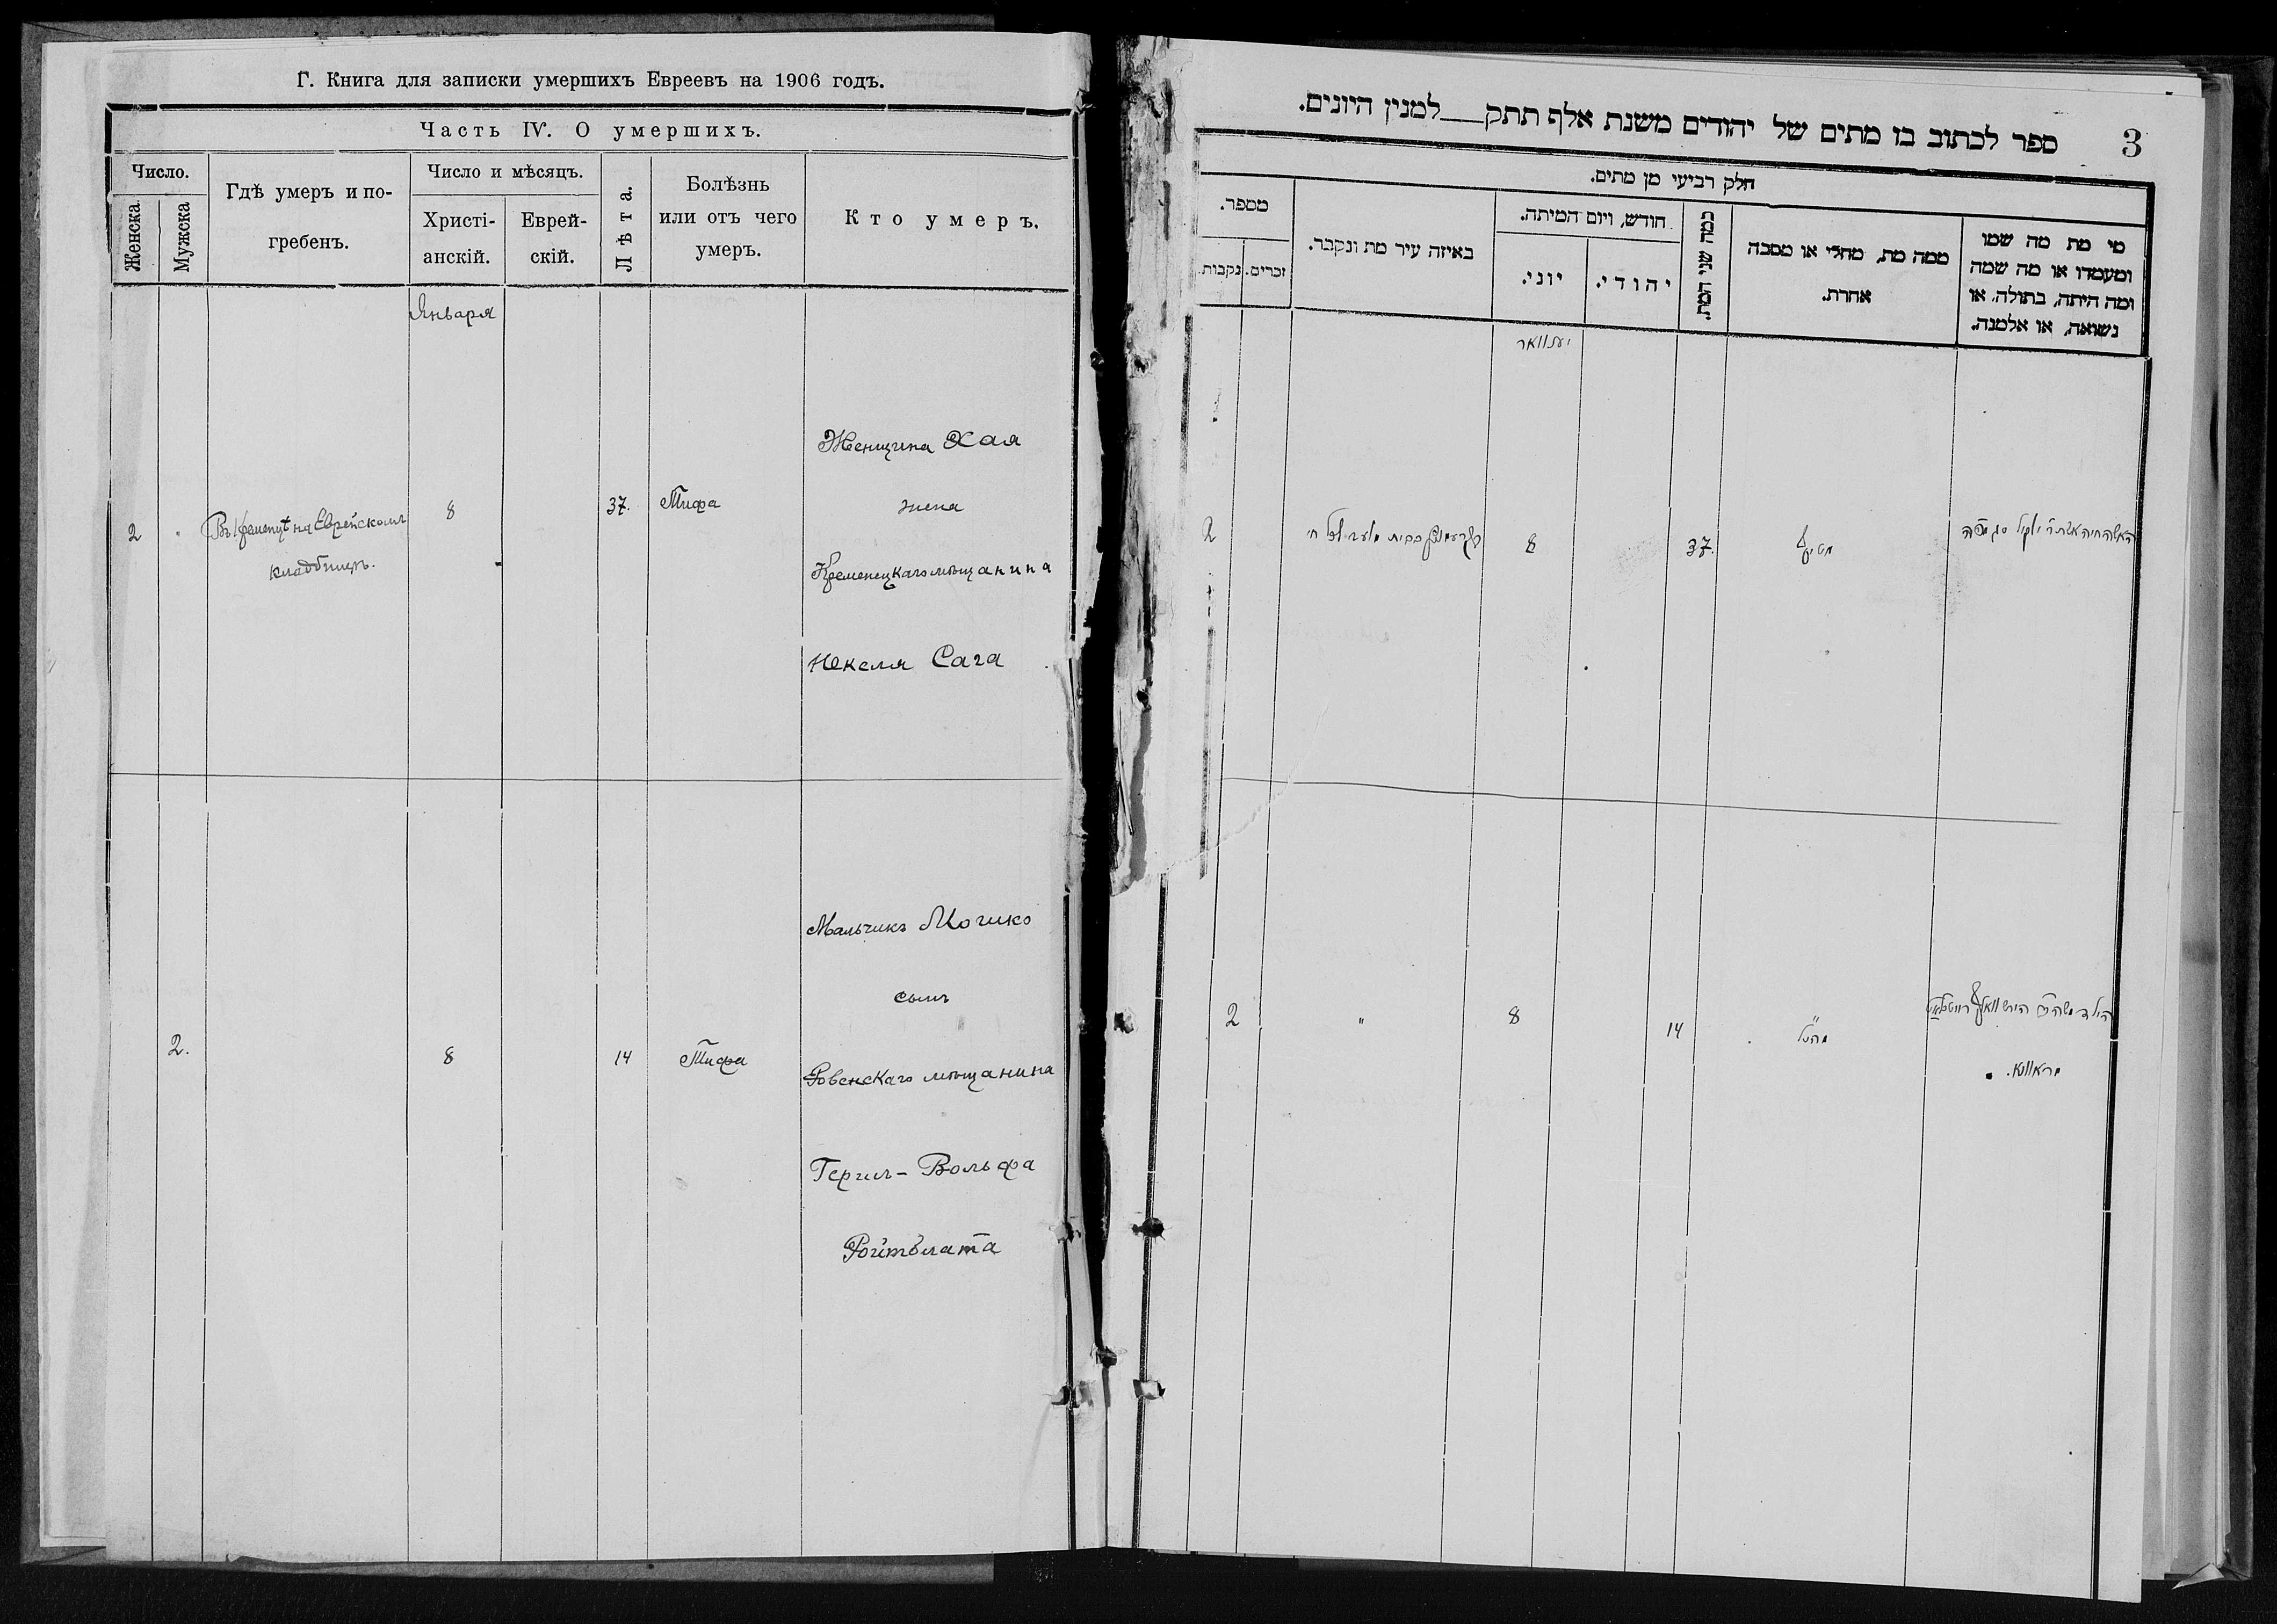 Г. Книга для записки умершихъ Евреевъ на 1906 годъ.
Часть IV. О умершихъ.
Число.
Женска
Мужска
Гдѣ умеръ и по-
гребенъ.
Число и мѣсяцъ.
Христі-
анскій.
Еврей-
скій.
Лѣта.
Болѣзнь
или отъ чего
умеръ.
Кто умеръ.
Января
2
Въ Кременцѣ на Еврейскомъ
кладбищѣ.
8
37.
Тифа
Женщина Хая
жена
Кременецкаго мѣщанина
Някеля Сага
2.
8
14
Тифа
Мальчикъ
сынъ
Ровенскаго мѣщанина
Герша-Вольфа
Ройтблата
3
ספר לכתוב בו מתים של יהודים משנת אלף תתק למנין היונים.
חלק רביעי מן מתים.
מספר.
נקבות.
זכרים.
באיזה עיר מת ונקבר.
חודש, ויום המיתה.
יוני.
יהודי.
כמה שני המת.
ממה מת, מחלי או מסבה
אחרת.
מי מת מה שמו
ומעמדו או מה שמה
ומה היתה, בתולה, או
נשואה, או אלמנה.
יענוואר
2
8
37.
האשה חיה אשת ר'
2
"
8
14
הירש וואלף רויטבלאט